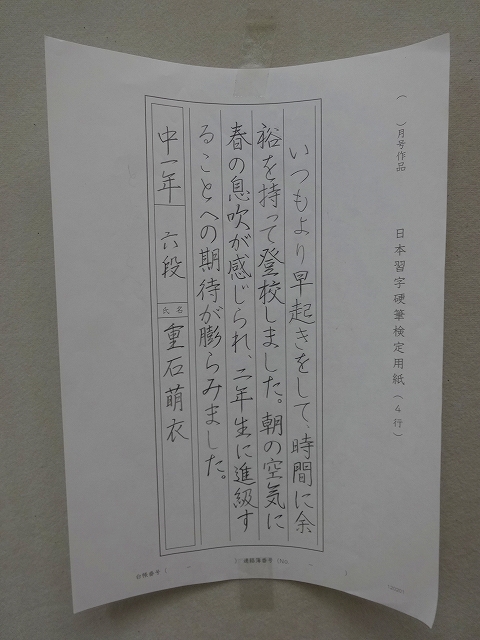 （　）月号作品　日本習字硬筆検定用紙（４行）
いつもより早起きをして、時間に余
裕を持って登校しました。朝の空気に
春の息吹が感じられ、二年生に進級す
ることへの期待が膨らみました。
中一年　六段　氏名　重石萌衣